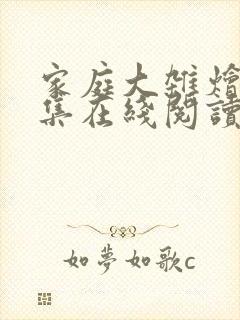 家庭大雜燴
集在綫閱讀
如夢如歌c